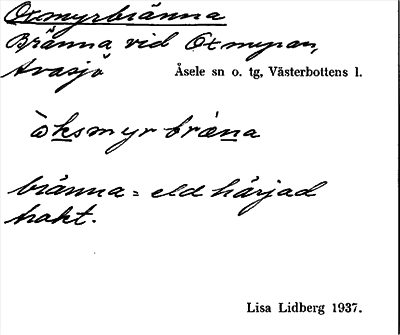 Oxmyrbränna
Bränna vid Oxmyran,
Avasjö Åsele sn o. tg, Västerbottens l.
òksmyr bräna
bränna = eld härjad
trakt.
Lisa Lidberg 1937.